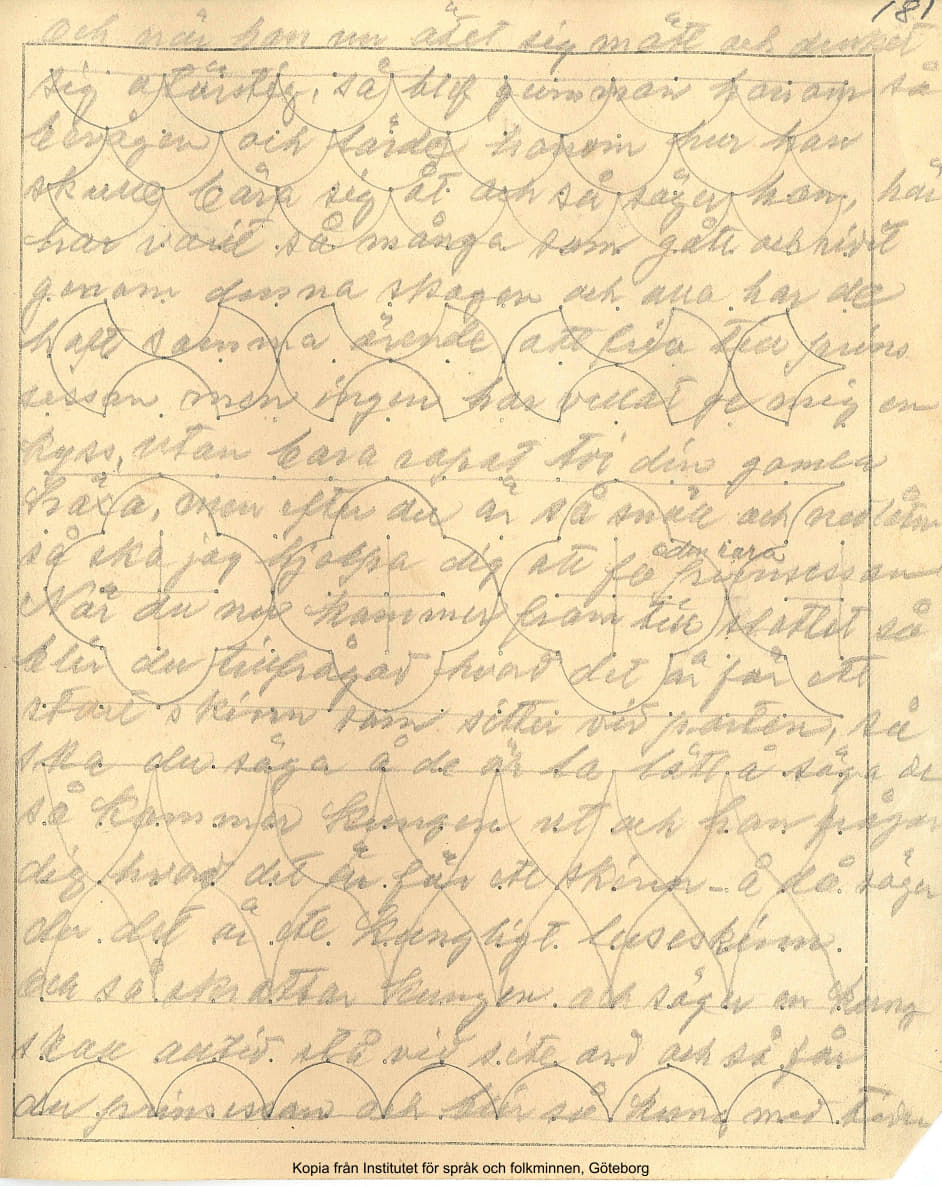 181
och när han nu ätet sig mätt och druket
sig otörstig, så blef gumman honom så
bevågen och lärde honom hur han
skulle bära sig åt och så säger hon, här
har varit så många som gått och ridit
genom denna skogen och alla har de
haft samma ärende att fria till prins
sessan men ingen har vellat ge mig en
kyss, utan bara ropat tvi din gamla
häxa, men efter du är så snäll och
så ska jag hjälpa dig att få prinsessan
När du nu kommer fram till slottet så
blir du tillfrågad hvad det är för ett
stort skinn som sitter vid porten, så
ska du säga å de är la lätt å säga de
så kommer kungen ut och han frågar
dig hvad det är för ett skinn – å då säger
du det är ett kungligt luseskinn
och så skrattar kungen och säger en kung
skall alltid stå vid sitt ord och så får
du prinsessan och blir så kung med tiden
Kopia från Institutet för språk och folkminnen, Göteborg